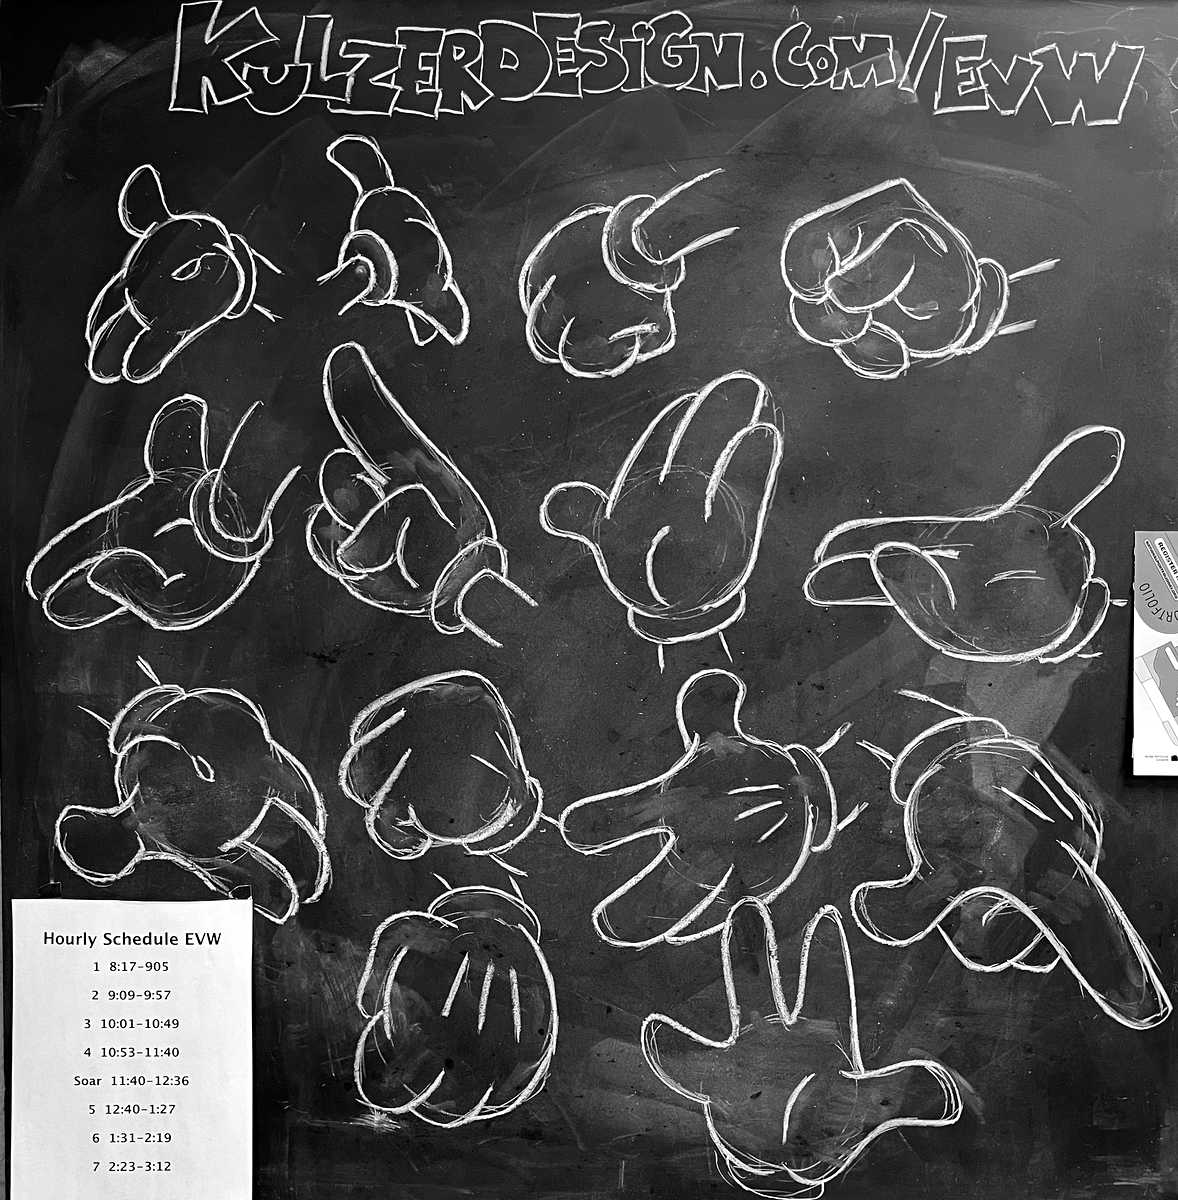 KULZERDESIGN.COM/EVW
REGISTER
ORTFOLIO
Hourly Schedule EVW
1 8:17-905
2 9:09-9:57
3 10:01-10:49
4 10:53-11:40
Soar 11:40-12:36
5 12:40-1:27
6 1:31-2:19
7 2:23-3:12